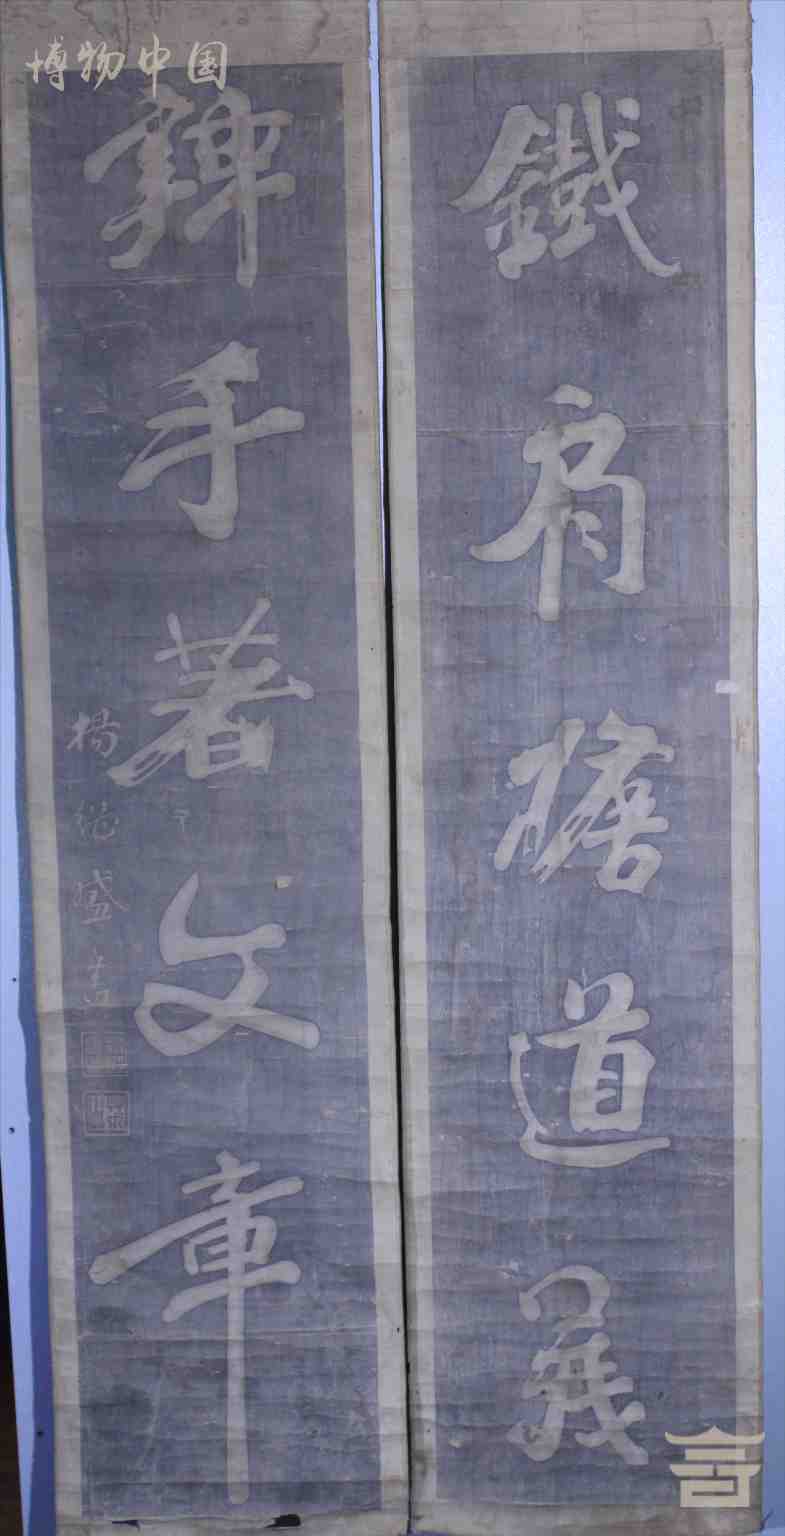 博物中国
鐵肩擔道義
辣手著文章
楊繼盛書